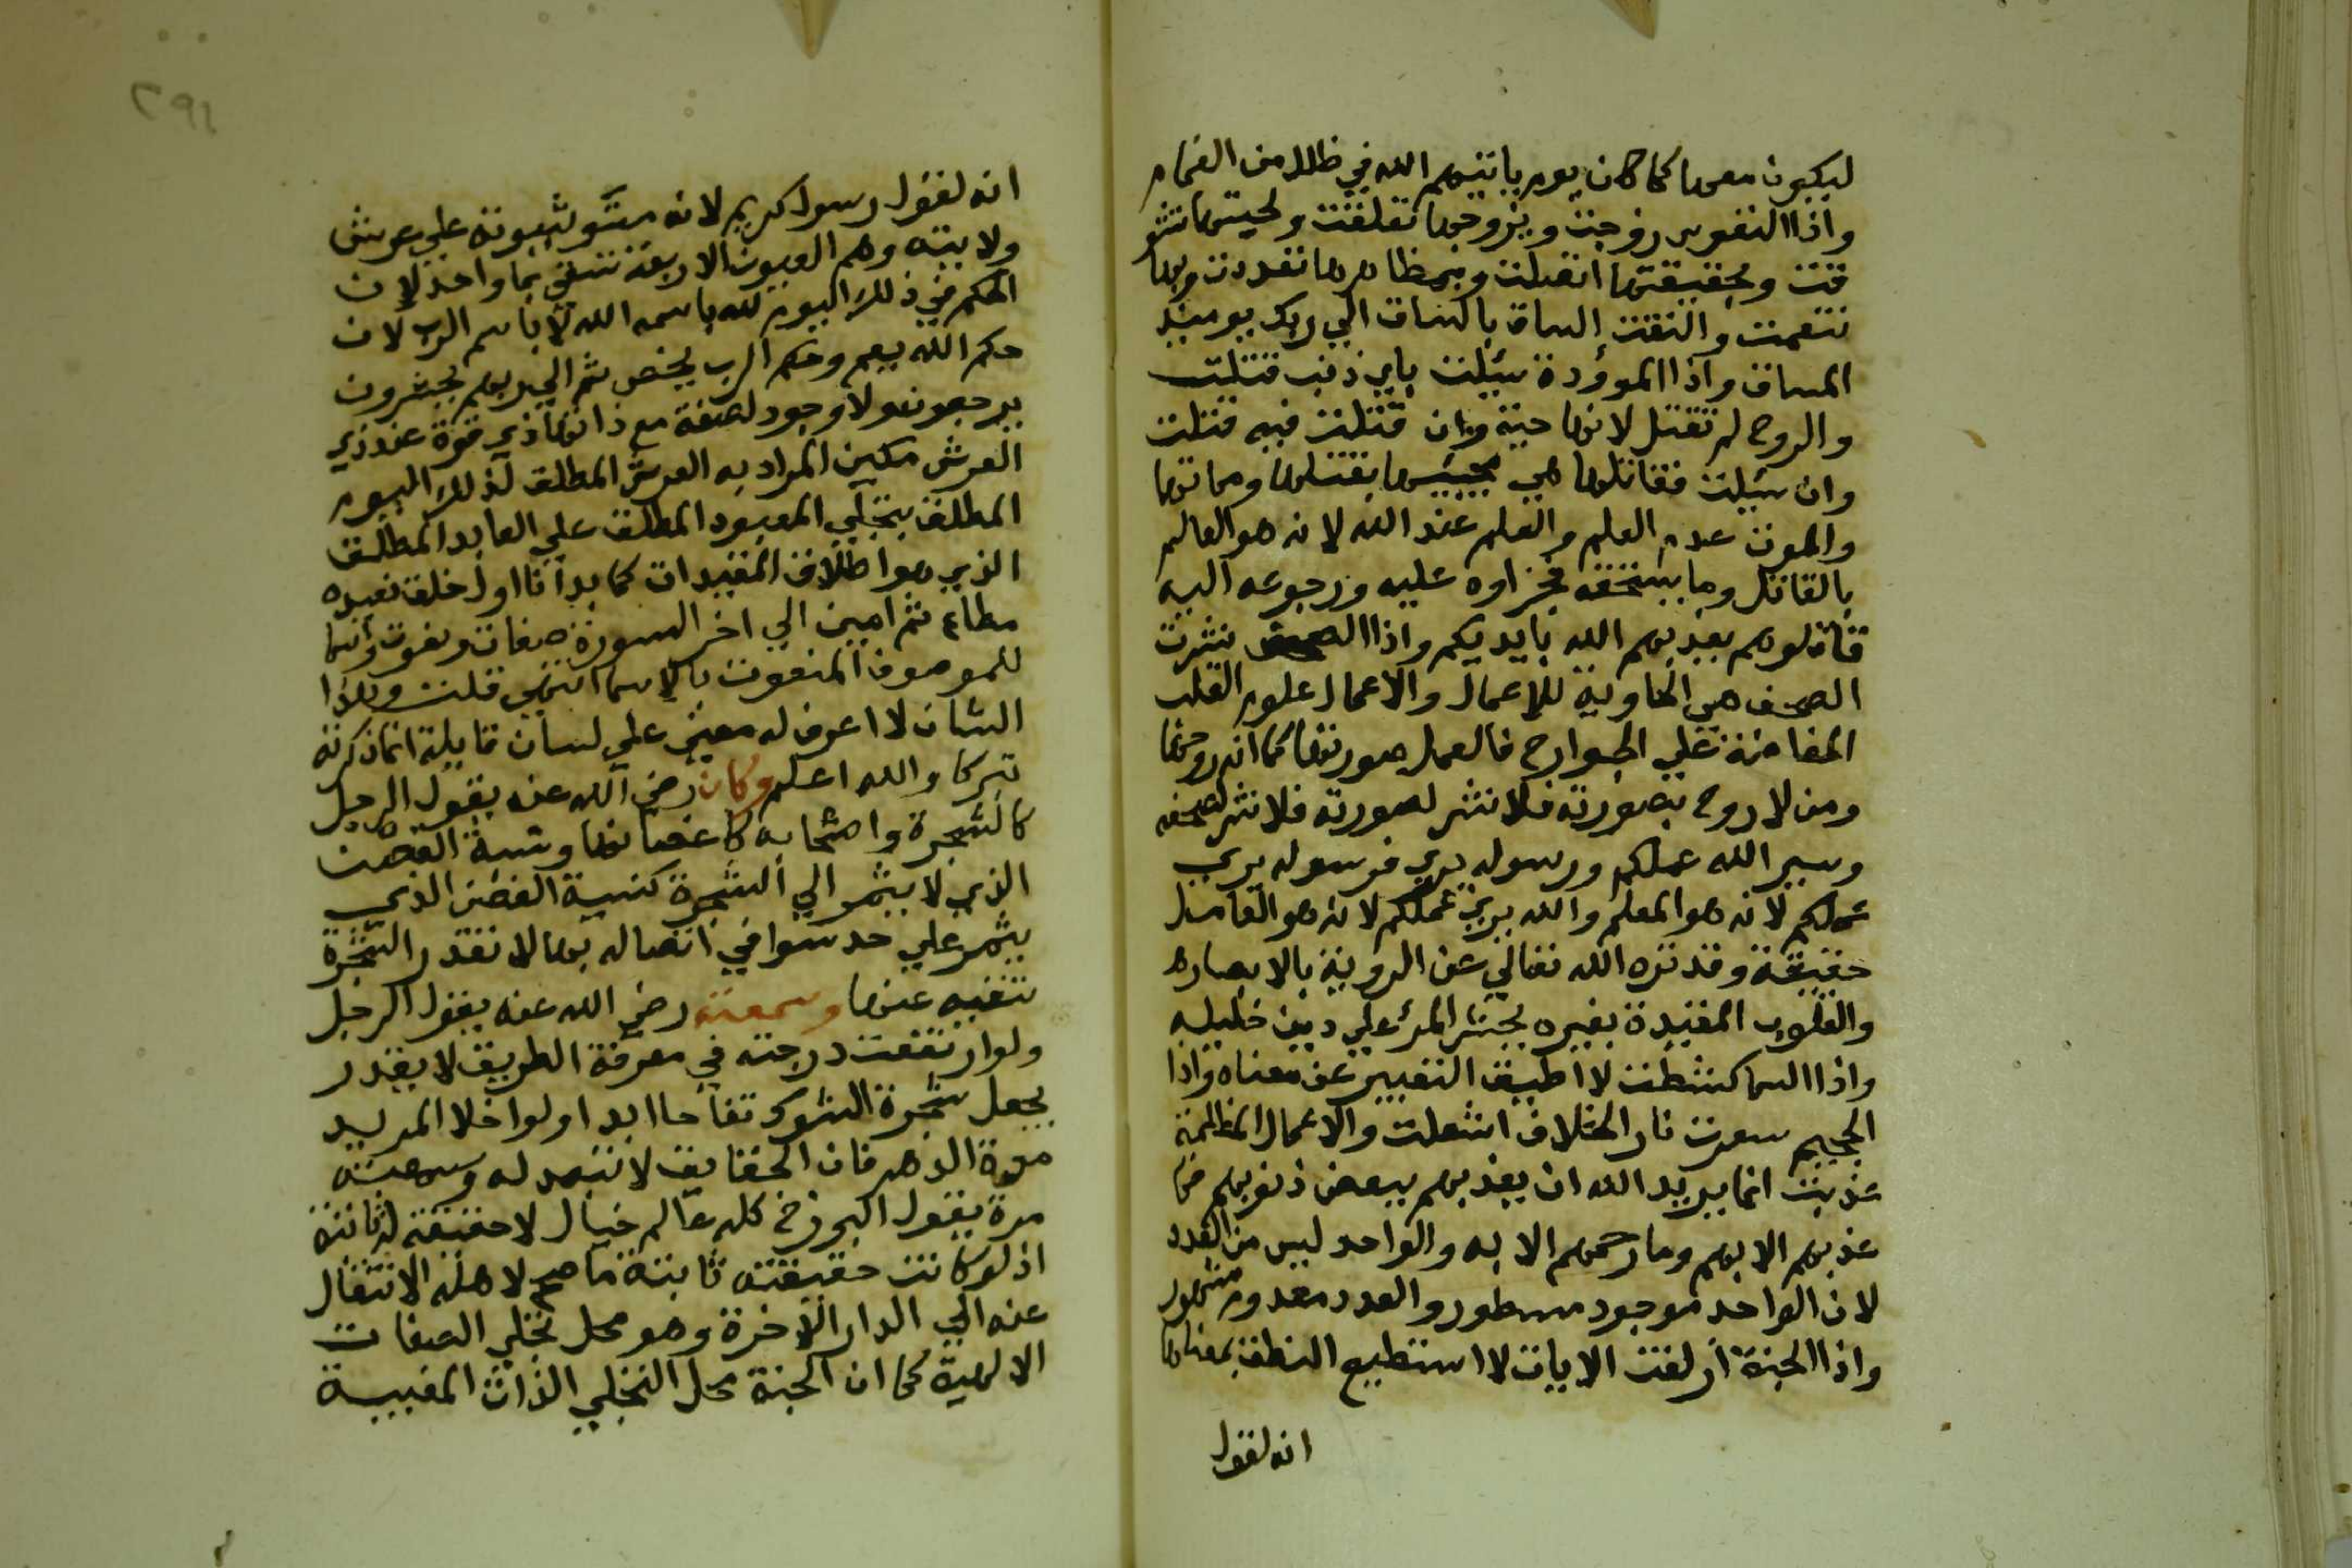 ليكون معها كما كان يوم ياتيهم الله في ظلل من الغمام
واذا النفوس زوجت وبزوجها تعلقت ولحيتها تشو
قت وبحقيقتها اتصلت وبمظاهرها تعددت وبها
تنعمت والتفت الساق بالساق الي ربك يومئذ
المساق واذا الموؤدة سئلت باي ذنب قتلت
والروح لم تقتل لانها حية وان قتلت فبه قتلت
وان سئلت فقاتلها هي بقتلها ومماتها
والموت عدم العلم والعلم عند الله لانه هو العالم
بالقاتل وما يستحقه فجزاوه عليه ورجوعه اليه
قاتلوهم يعذبهم الله بايديكم واذا الصحف نشرت
الصحف هي الحاوية للاعمال والاعمال علوم القلب
المفاضة علي الجوارح فالعمل صورتها كما انه روحها
ومن لا روح بصورته فلا نشر لصورته فلا نشر لصحفه
وسير الله عملكم ورسوله يري فرسوله يري
عملكم لانه هو المعلم والله يري عملكم لانه هو العامل
حقيقة وقد تنزه الله تعالي عن الروية بالابصاره
والقلوب المقيدة بغيره يحشر المرء علي دين خليله
واذا السما كشطت لا اطيق التعبير عن معناه واذا
الجحيم سعرت نار الخلاف اشتعلت والاعمال المظلمة
عذبت انما يريد الله ان يعذبهم ببعض ذنوبهم فما
عذبهم الا بهم وما رحمهم الا به والواحد ليس من العدد
لان الواحد موجود مسطور والعدد معدوم مشهور
واذا الجنة ازلفت الايات لا استطيع النطق بمعناها
انه لقول
٢٩١
انه لقول رسول كريم لانه مستو بثبوته علي عرش
ولايته وهم العيون الاربعة تسقي بما واحد لان
الحكم في ذلك اليوم لله باسمه الله لا باسم الرب لان
حكم الله يعم وحكم الرب يخص ثم الي ربهم يحشرون
يرجعون ولا وجود لصفة مع ذاتها ذي قوة عند ذي
العرش مكين المراد به العرش المطلق لذلك اليوم
المطلق بتجلي المعبود المطلق علي العابد المطلق
الذي هو اطلاق المقيدات كما بدانا اول خلق نعيده
مطاع ثم امين الي اخر السورة صفات ونعوت واسما
للموصوف المنعوت بالاسما انتهي قلت وهذا
الشان لا اعرف له معني علي لسان قايله انما ذكرته
تبركا والله اعلم وكان رضي الله عنه يقول الرجل
كالشجرة واصحابه كاغصانها ونسبة الغصن
الذي لا يثمر الي الشجرة كنسبة الغصن الذي
يثمر علي حد سوا في اتصاله بها لا تقدر الشجرة
تنفيه عنها وسمعته رضي الله عنه يقول الرجل
ولو ارتفعت درجته في معرفة الطريق لا يقدر
يجعل شجرة الشوك تفاحا ابدا ولو اخلا المريد
مدة الدهر فان الحقايق لا تتبدل له وسمعته
مرة يقول البرزخ كله عالم خيال لا حقيقة له ثابتة
اذ لو كانت حقيقته ثابتة ما صح لاهله الانتقال
عنه الي الدار الاخرة وهو محل تجلي الصفات
الالهية كما ان الجنة محل التجلي الذات المغيبة